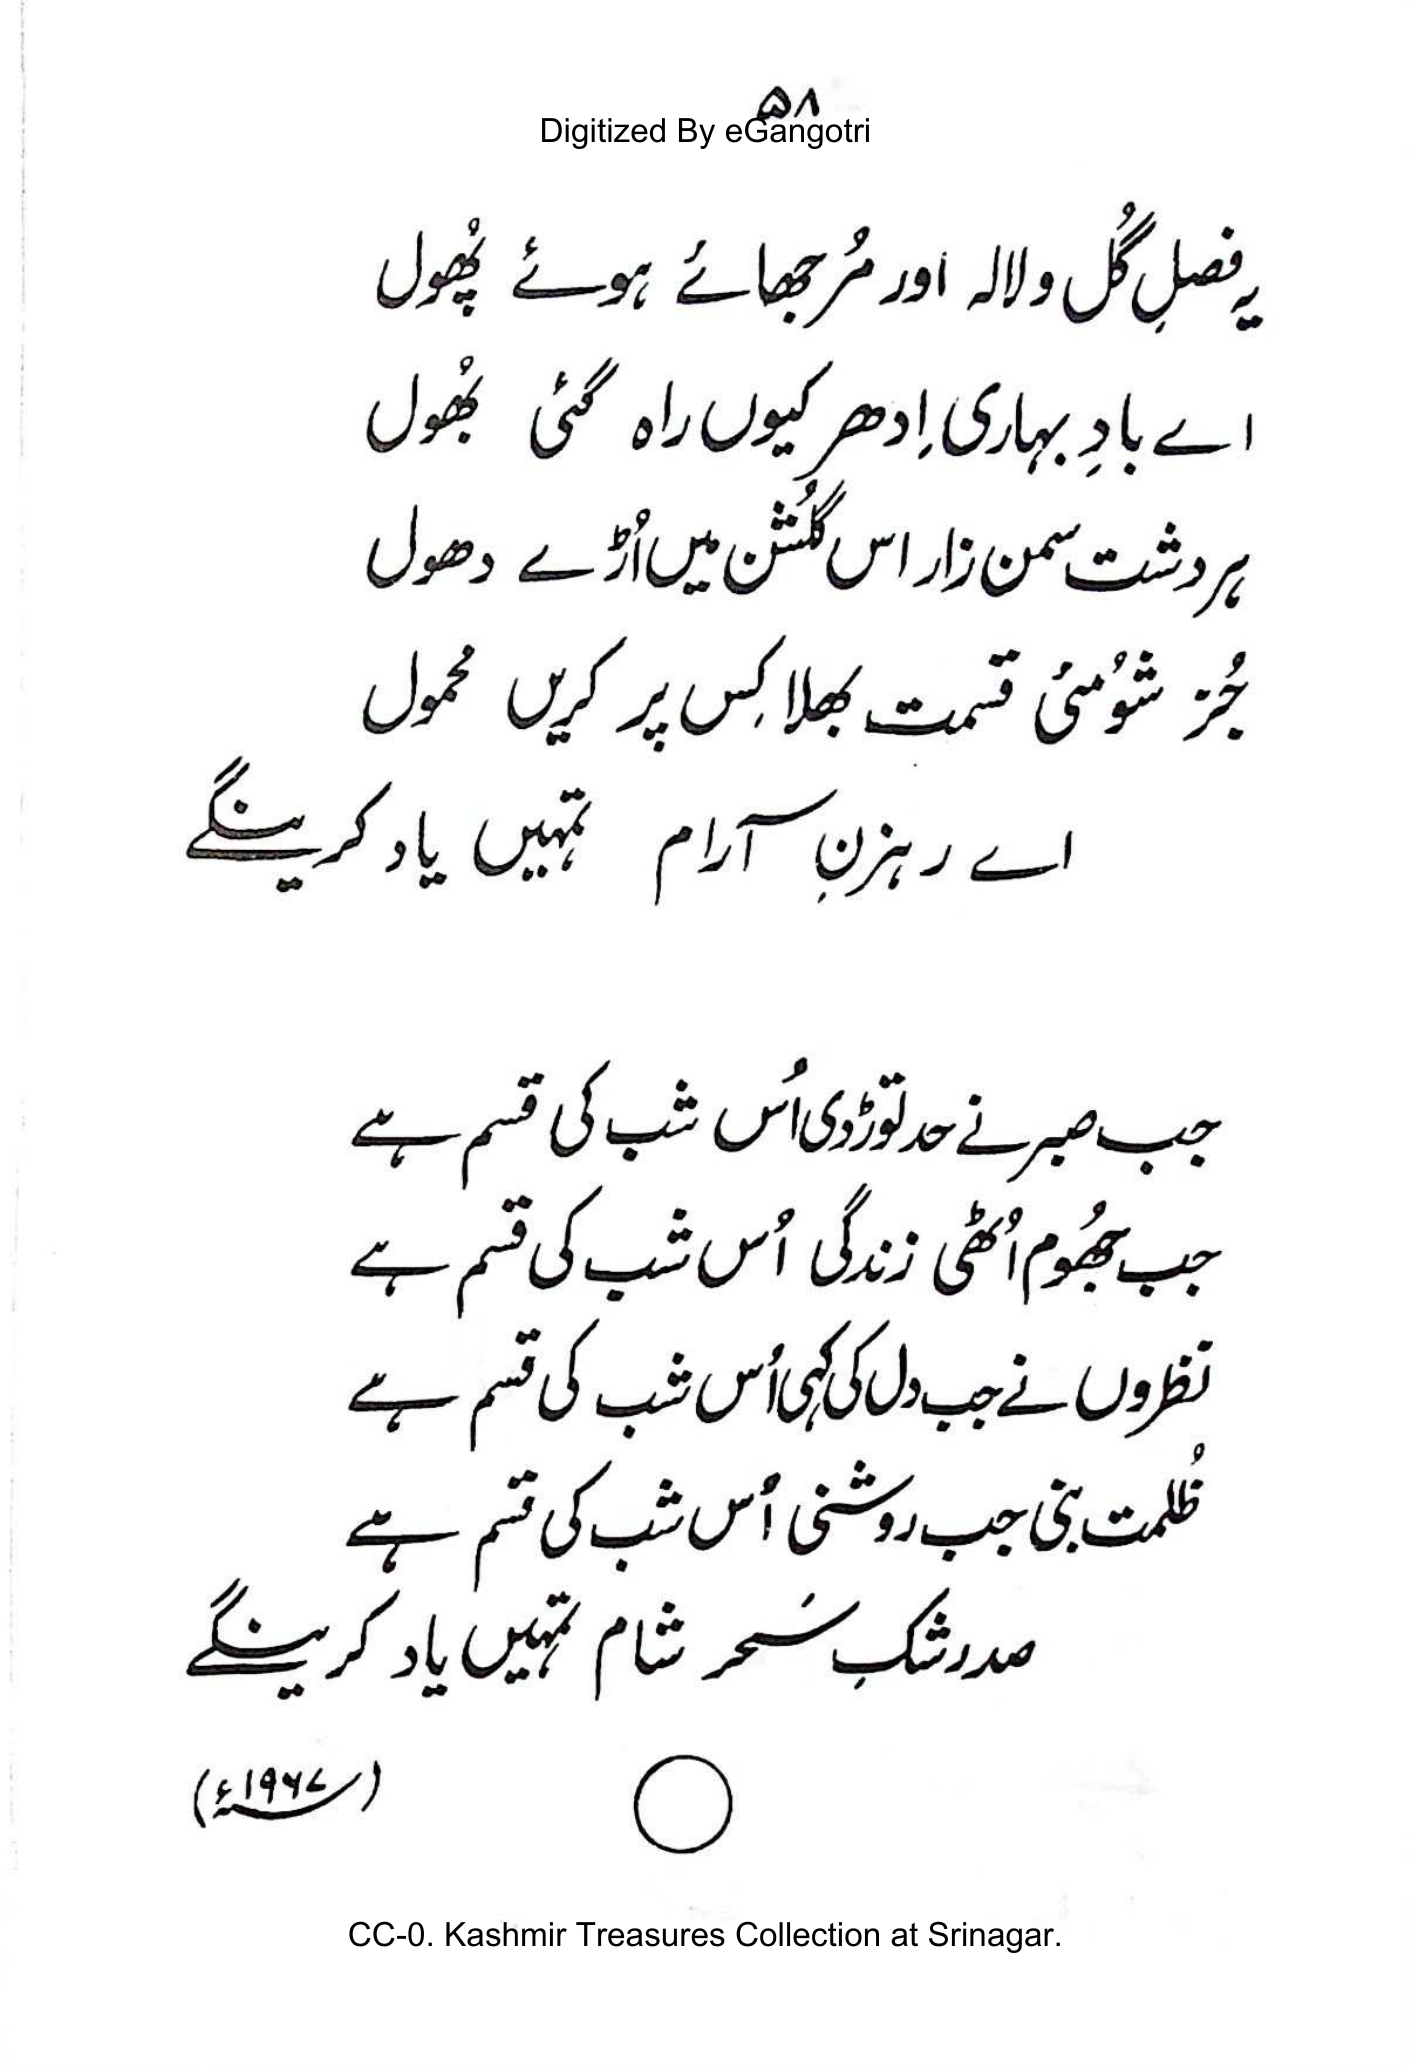 ۵۸
Digitized By eGangotri
یہ فصلِ گُل و لالہ اور مُرجھائے ہوئے پھُول
اے بادِ بہاری اِدھر کیوں راہ گئی بھُول
ہر دشت سمن زار اس گلُشن میں اُڑے دھول
جُز شوُمئی قسمت بھلا کِس پر کریں محمول
اے رہزنِ آرام تمہیں یاد کرینگے
جب صبر نے حد توڑ دی اُس شب کی قسم ہے
جب جھُوم اُٹھی زندگی اُس شب کی قسم ہے
نظروں نے جب دل کی کہی اُس شب کی قسم ہے
ظُلمت بنی جب روشنی اُس شب کی قسم ہے
صد رشکِ سَحر شام تمہیں یاد کرینگے
(۱۹۶۷ء)
CC-0. Kashmir Treasures Collection at Srinagar.